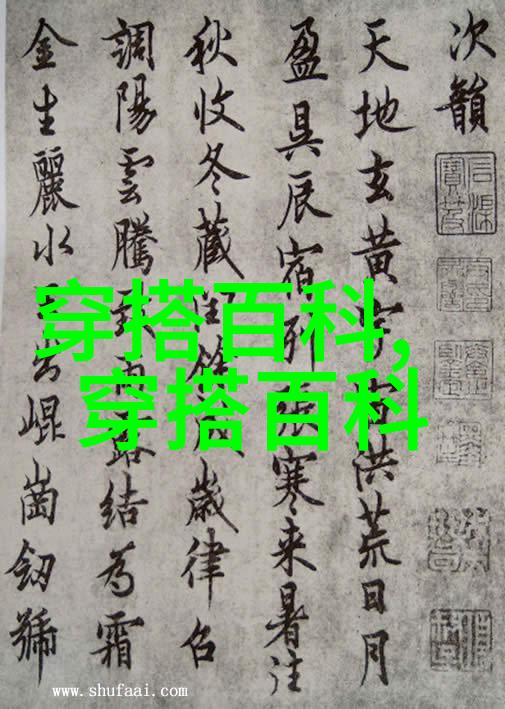 次韻
天地玄黄宇宙洪荒日月
盈昃辰宿列張寒来暑往
秋收冬藏閏餘成歲律召
調陽雲騰致雨露結為霜
金生麗水玉出崐崗劒號
穿搭百科,
穿搭百科
www.shufaai.com